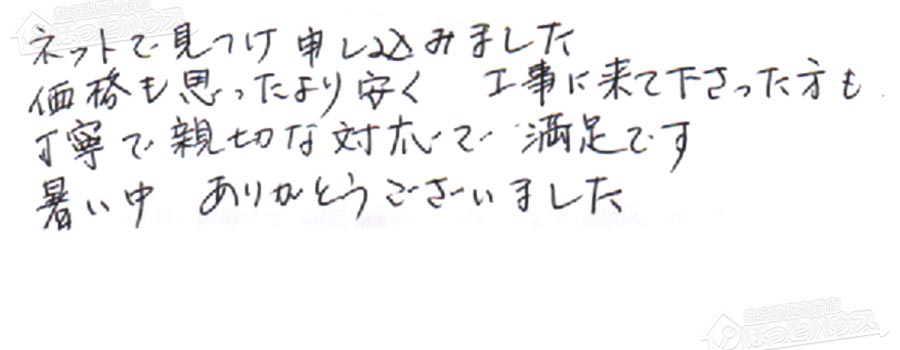 ネットで見つけ 申し込みました
価格も思ったより安く 工事に来て下さった方も
丁寧で親切な対応で 満足です
暑い中 ありがとうございました
ほっとハウス
ほっとハウス